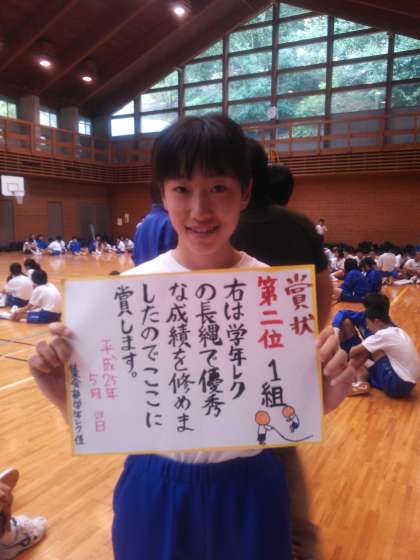 賞状
第二位 1組
右は学年レク
の長縄で優秀
な成績を修めま
したのでここに
賞します。
平成25年
5月